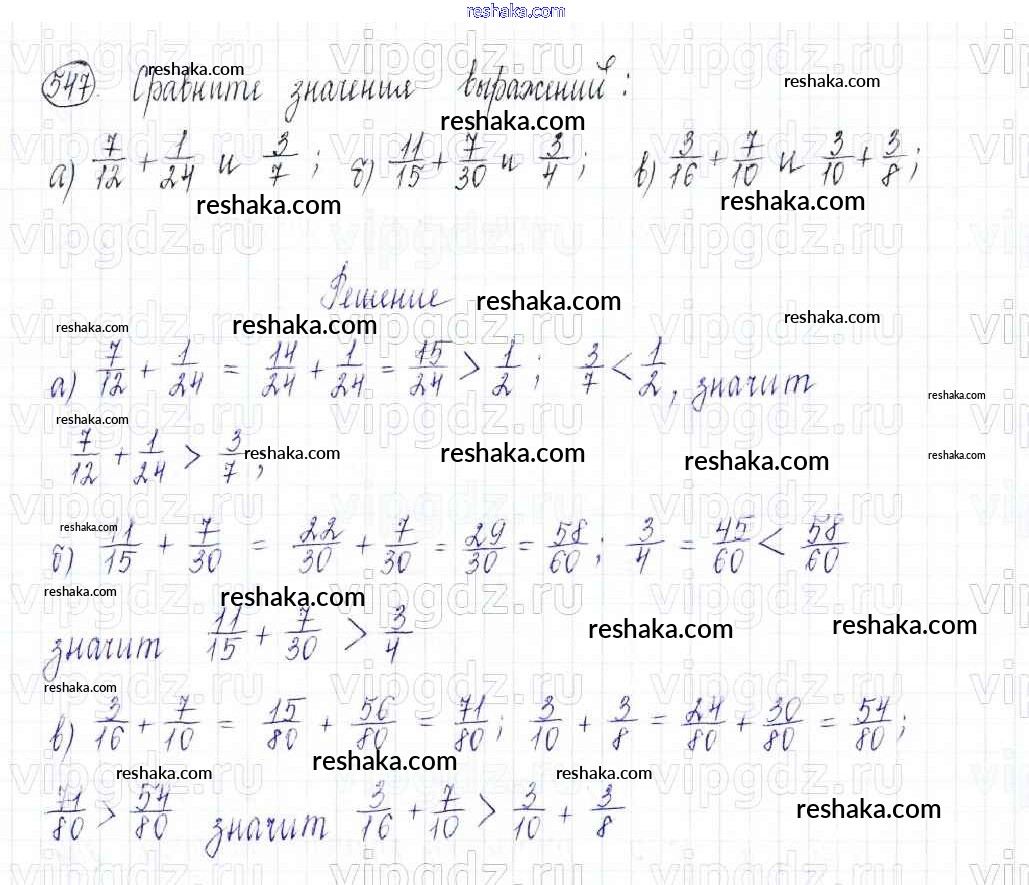 reshaka.com
547. Сравните значения выражений:
а) 7/12 + 1/24 и 3/7; б) 11/15 + 7/30 и 3/4; в) 3/16 + 7/10 и 3/10 + 3/8;
Решение
а) 7/12 + 1/24 = 14/24 + 1/24 = 15/24 > 1/2; 3/7 < 1/2, значит
7/12 + 1/24 > 3/7;
б) 11/15 + 7/30 = 22/30 + 7/30 = 29/30 = 58/60; 3/4 = 45/60 < 58/60
значит 11/15 + 7/30 > 3/4
в) 3/16 + 7/10 = 15/80 + 56/80 = 71/80; 3/10 + 3/8 = 24/80 + 30/80 = 54/80;
71/80 > 54/80 значит 3/16 + 7/10 > 3/10 + 3/8
vipgdz.ru